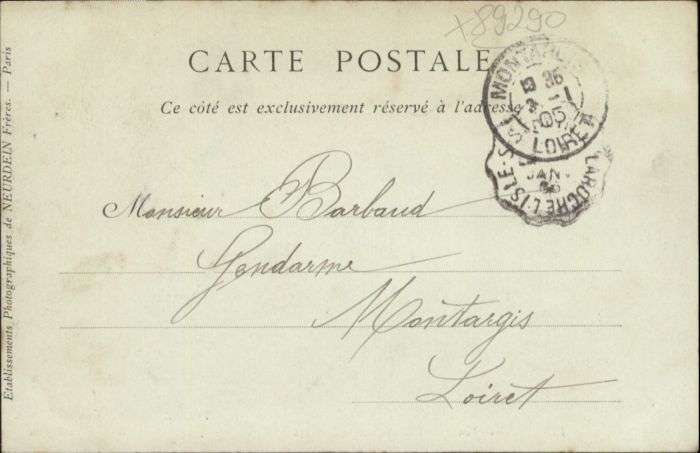 +89290
CARTE POSTALE
Ce côté est exclusivement réservé à l'adresse
MONTARGIS
LOIRET
05
LAROCHE L'ISLE-S
JANV
05
Monsieur Barbaud
Gendarme
Montargis
Loiret
Etablissements Photographiques de NEURDEIN Frères. — Paris